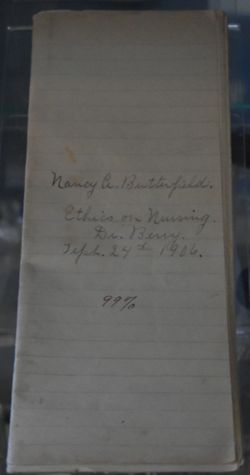 Nancy A. Butterfield.
Ethics on Nursing.
Dr. Berry.
Sept. 24th 1906.
99%